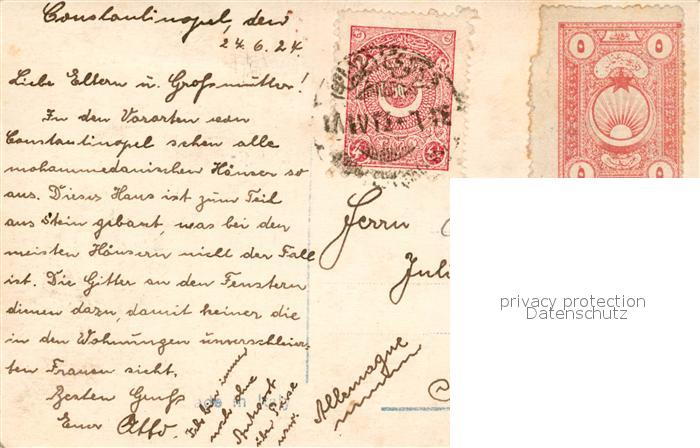 Constantinopel, den
24.6.24.
Liebe Eltern u. Großmutter!
In den Vororten von
Constantinopel sehen alle
mohammedanischen Häuser so
aus. Dieses Haus ist zum Teil
aus Stein gebaut, was bei den
meisten Häusern nicht der Fall
ist. Die Gitter an den Fenstern
dienen dazu, damit keiner die
in den Wohnungen unverschleier-
ten Frauen sieht.
Besten Gruß
Euer Otto.
Ich bin immer
noch ohne
Antwort
Herrn
Juli
Allemagne
privacy protection
Datenschutz